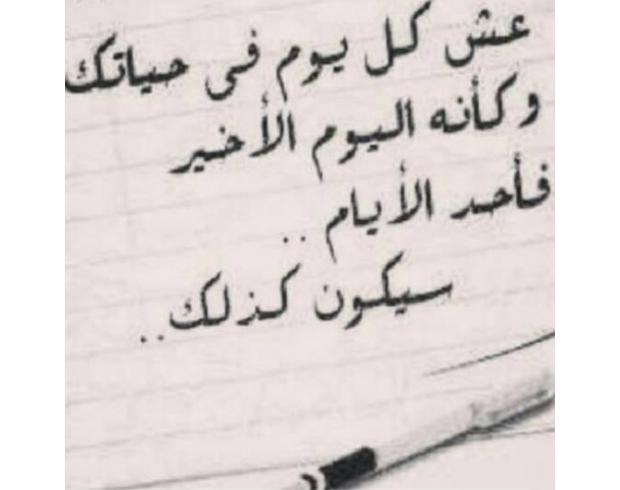 عش كل يوم في حياتك
وكأنه اليوم الأخير
فأحد الأيام ..
سيكون كذلك ..